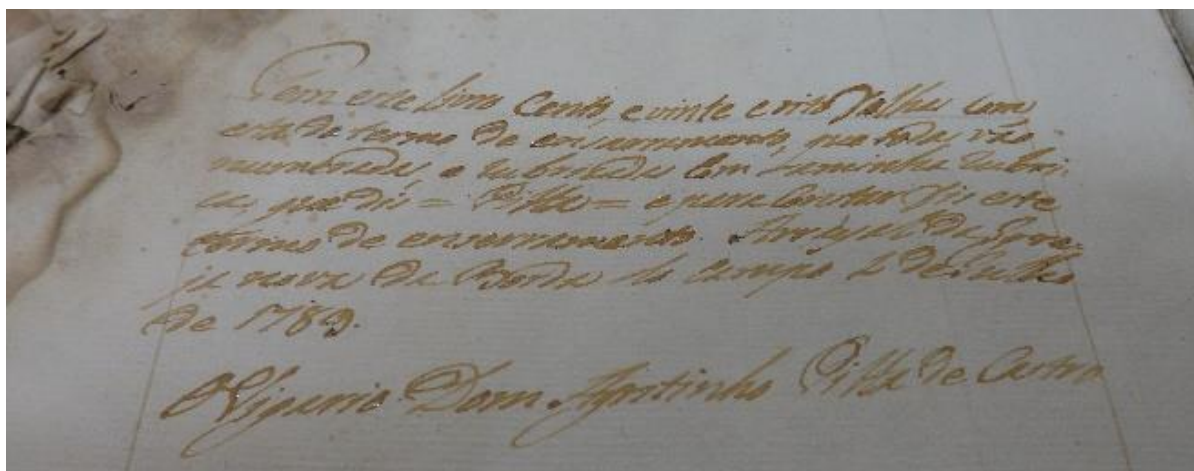 Tem este livro Cento, e vinte e oito folhas com
esta do termo de encerramento, que todas vão
numeradas, e rubricadas com a minha rubri-
ca, que diz = Pitta = e para constar fiz este
termo de encerramento. Arrayal da Igre-
ja nova da Borda do campo 2 de Julho
de 1789.
O Vigario Dom. Agostinho Pitta de Castro